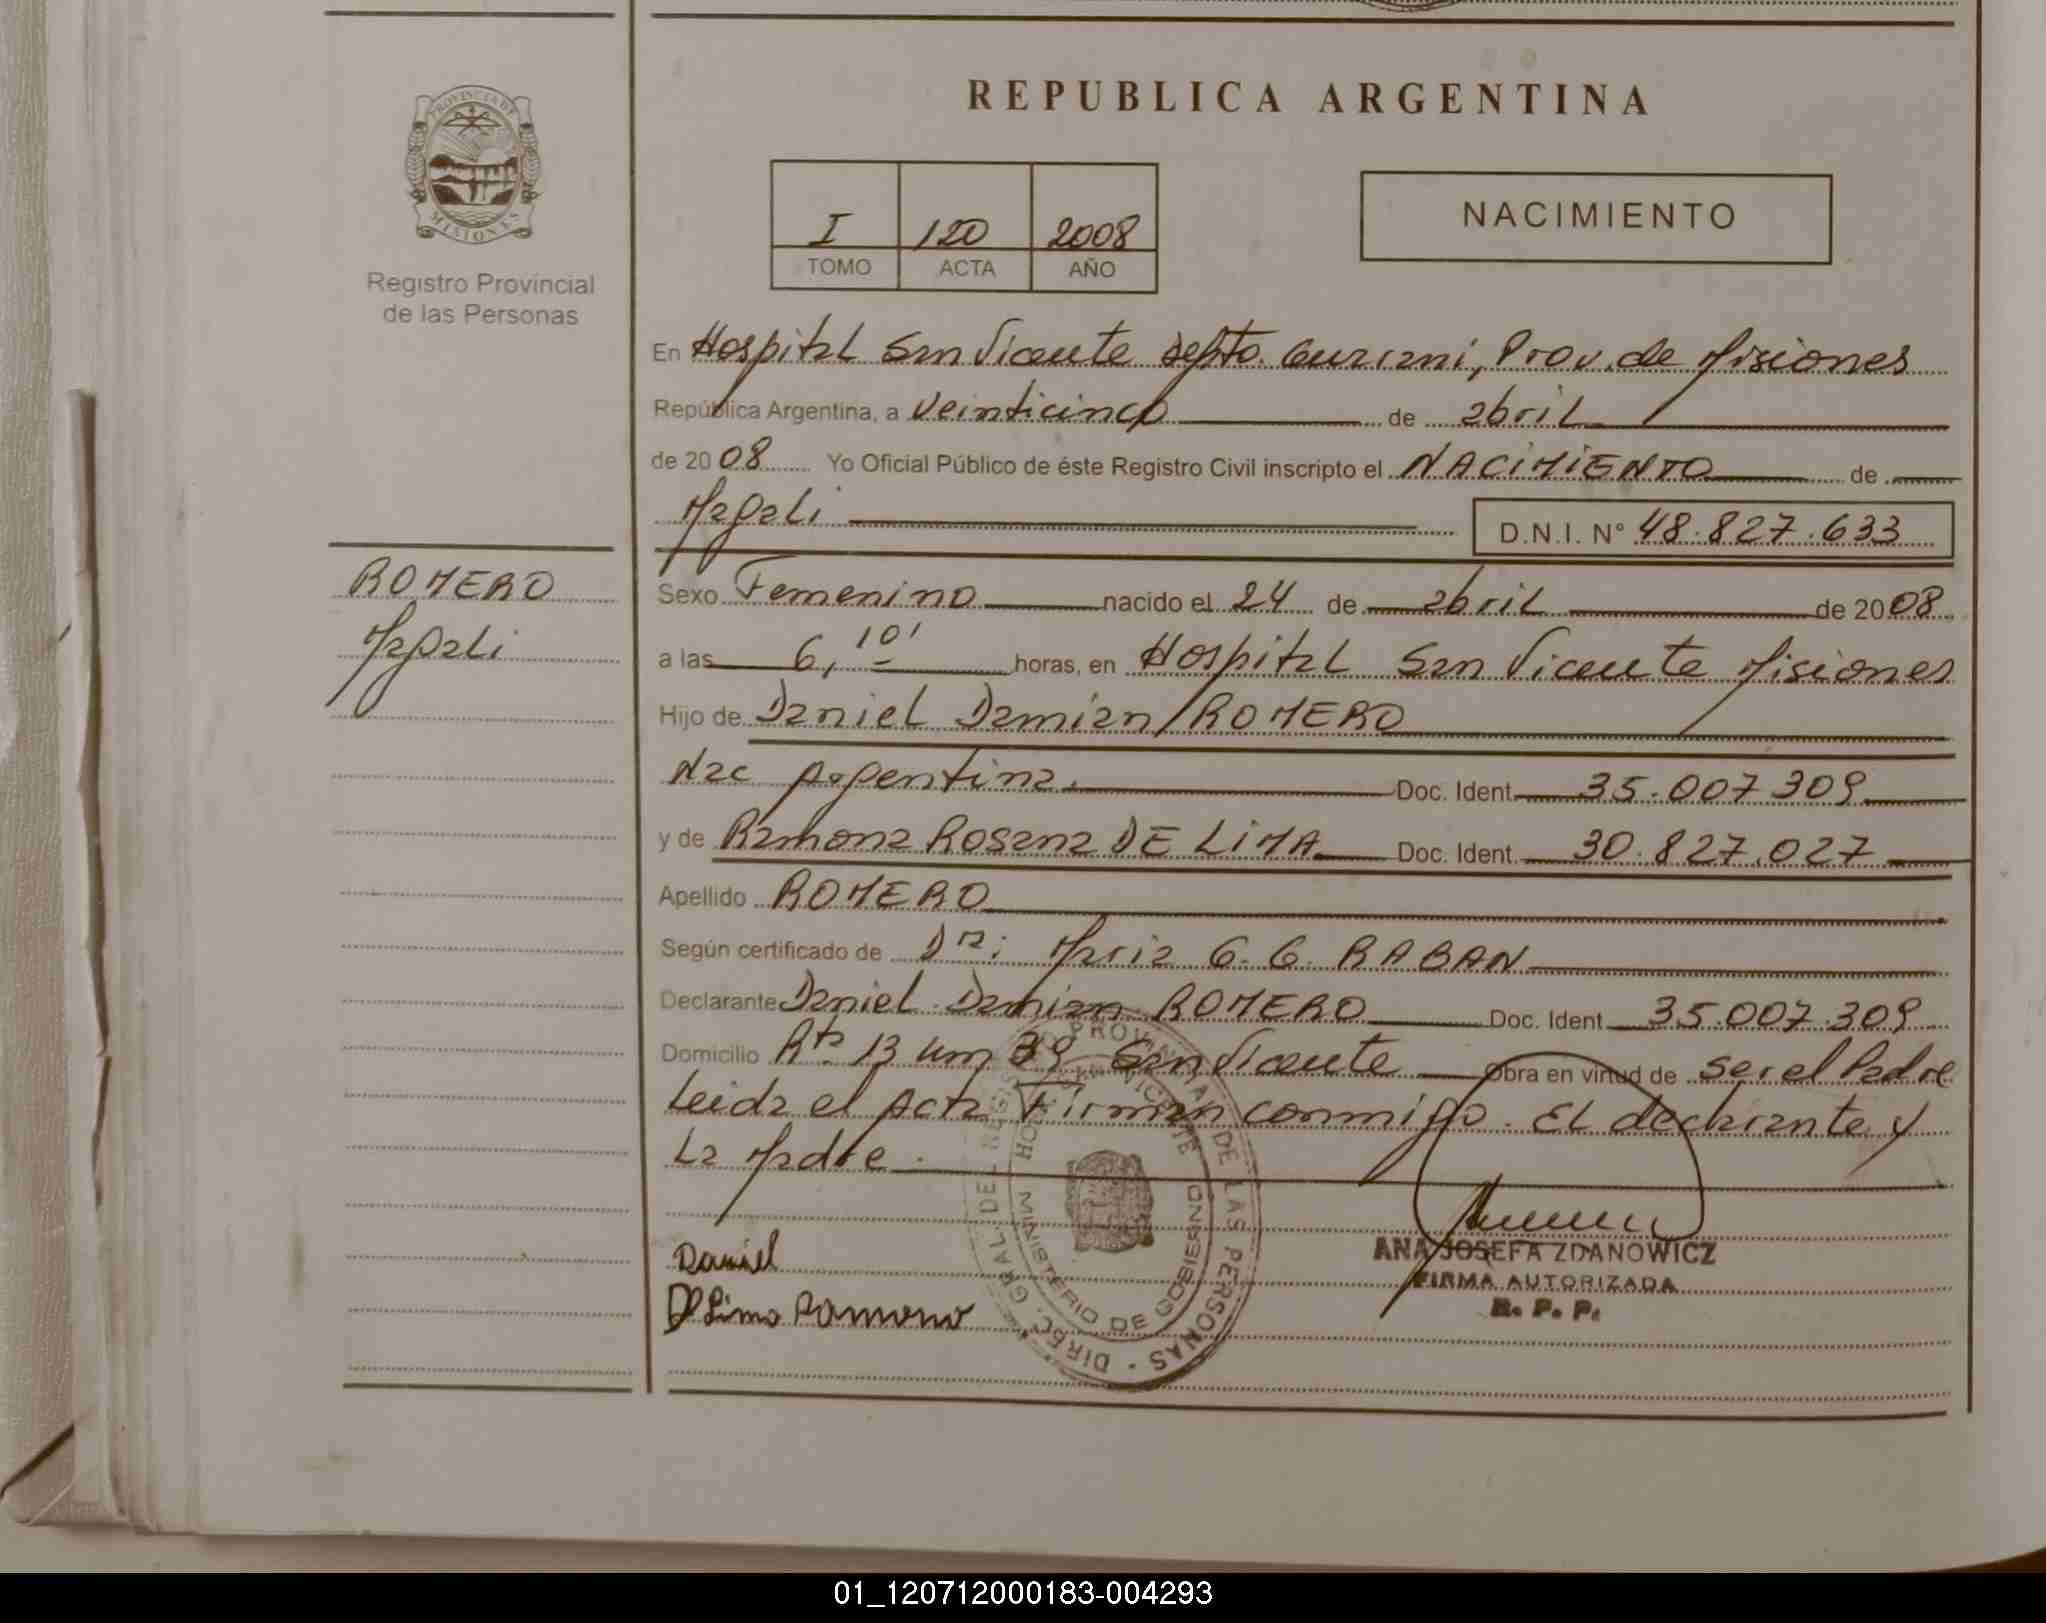 REPUBLICA ARGENTINA
PROVINCIA DE
MISIONES
Registro Provincial
de las Personas
I 120 2008
TOMO ACTA AÑO
NACIMIENTO
En Hospital San Vicente depto. Guarani, Prov. de Misiones
República Argentina, a veinticinco de abril
de 2008 Yo Oficial Público de éste Registro Civil inscripto el NACIMIENTO de
Magali D.N.I. N° 48.827.633
ROMERO
Magali
Sexo Femenino nacido el 24 de abril de 2008
a las 6,10' horas, en Hospital San Vicente Misiones
Hijo de Daniel Damian ROMERO
Nac Argentina. Doc. Ident. 35.007.309
y de Ramona Rosana DE LIMA Doc. Ident. 30.827.027
Apellido ROMERO
Según certificado de Dra: Maria G. G. RABAN
Declarante Daniel Damian ROMERO Doc. Ident. 35.007.309
Domicilio Rta 13 Km 39 San Vicente Obra en virtud de ser el Padre
Leida el Acta Firman conmigo. El declarante y
La Madre.
Daniel
De Lima Ramona
DIREC. GRAL. DEL REGISTRO PROVINCIAL DE LAS PERSONAS
MINISTERIO DE GOBIERNO
ANA JOSEFA ZDANOWICZ
FIRMA AUTORIZADA
R. P. P.
01_120712000183-004293